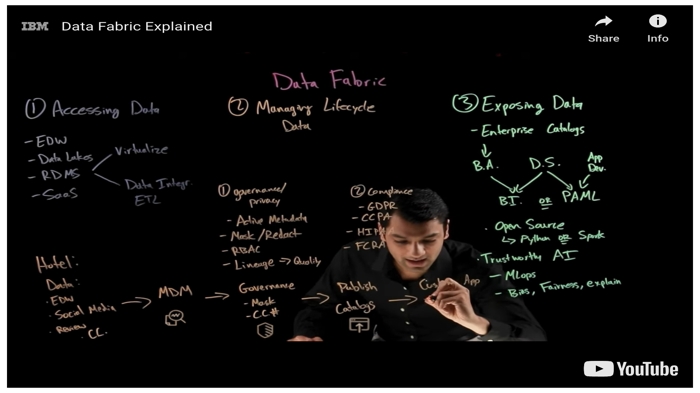 IBM Data Fabric Explained
Share
Info
Data Fabric
① Accessing Data
- EDW
- Data Lakes
- RDMS
- SaaS
Virtualize
Data Integr.
ETL
② Managing Lifecycle
Data
① governance/
privacy
- Active Metadata
- Mask/Redact
- RBAC
- Lineage → Quality
② Compliance
- GDPR
- CCPA
- FCRA
③ Exposing Data
- Enterprise Catalogs
B.A.
D.S.
App
Dev.
BI. OR PAML
• Open Source
↳ Python OR Spark
• Trustworthy AI
- MLops
- Bias, Fairness, explain
Hotel:
Data:
• EDW
• Social Media
• Review
• CC.
→ MDM →
Governance
- Mask
- CC#
→ Publish
Catalogs →
App
YouTube